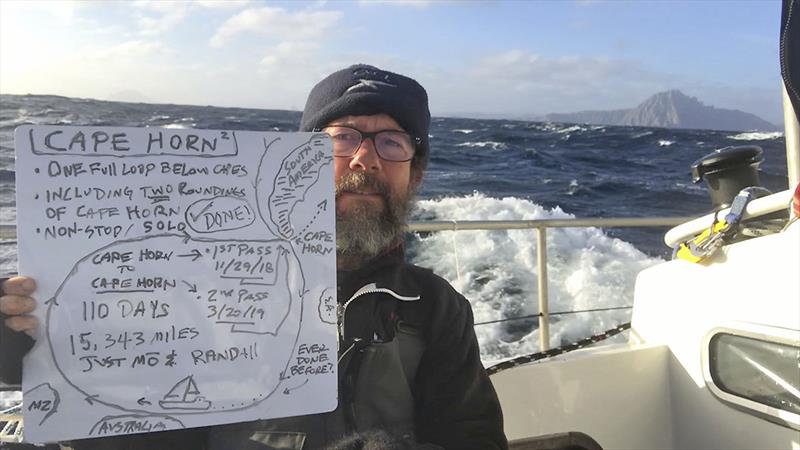 CAPE HORN²
• ONE FULL LOOP BELOW CAPES
• INCLUDING TWO ROUNDINGS
OF CAPE HORN
• NON-STOP/SOLO
DONE!
SOUTH
AMERICA
CAPE
HORN
CAPE HORN
TO
CAPE HORN
• 1ST PASS
11/29/18
• 2ND PASS
3/20/19
110 DAYS
15,343 MILES
JUST MO & RANDALL
EVER
DONE BEFORE?
NZ
AUSTRALIA